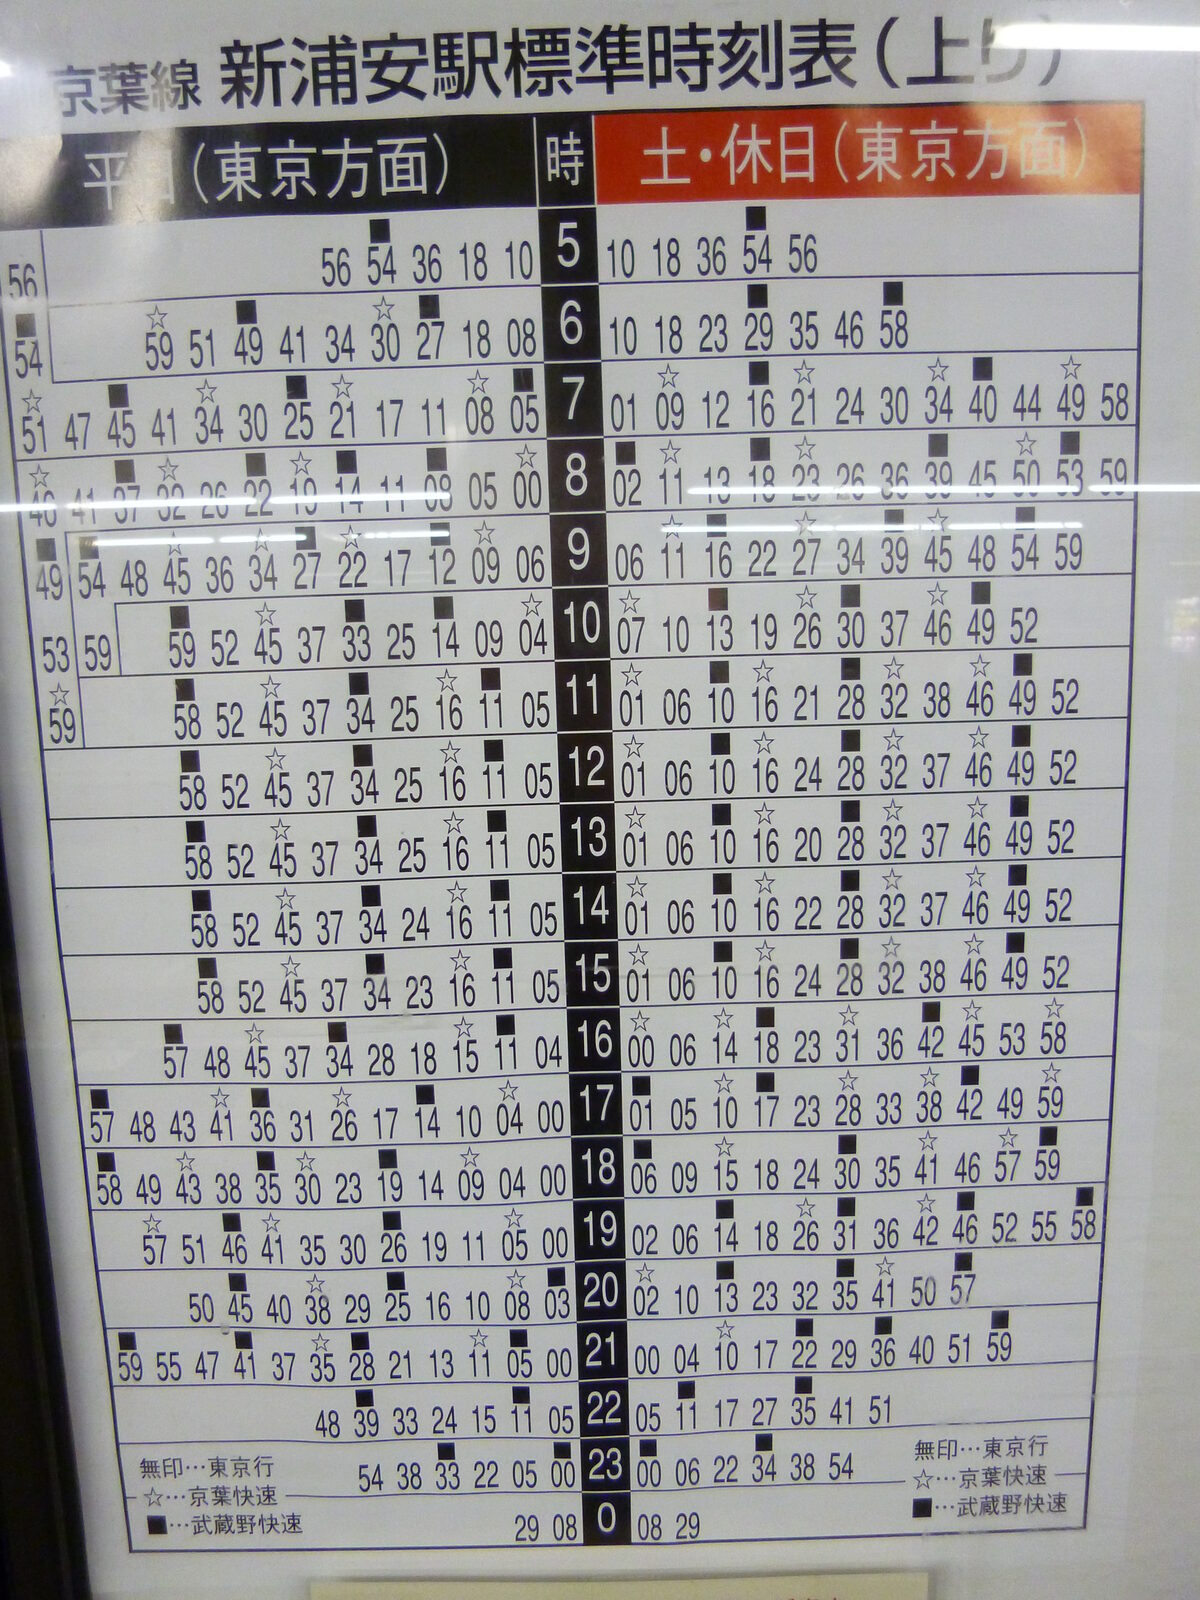 京葉線 新浦安駅標準時刻表(上り)
平日(東京方面) 時 土・休日(東京方面)
56 56 ■54 36 18 10 5 10 18 36 ■54 56
■54 ☆59 51 ■49 41 34 ☆30 ■27 18 08 6 10 18 23 ■29 35 46 ■58
☆51 47 ■45 41 ☆34 30 ■25 ☆21 17 11 ☆08 ■05 7 01 ☆09 12 ■16 ☆21 24 30 ☆34 ■40 44 ☆49 58
☆46 41 ■37 ☆32 26 ■22 ☆19 ■14 11 ■08 05 ☆00 8 ■02 ☆11 13 ■18 ☆23 26 36 ■39 45 ☆50 ■53 59
■49 ■54 48 ☆45 36 ☆34 ■27 ☆22 17 ■12 ☆09 06 9 06 ☆11 ■16 22 ☆27 34 ■39 ☆45 48 ■54 59
53 59 ■59 52 ☆45 37 ■33 25 ■14 09 ☆04 10 ☆07 10 ■13 19 ☆26 ■30 37 ☆46 ■49 52
☆59 ■58 52 ☆45 37 ■34 25 ☆16 ■11 05 11 ☆01 06 ■10 ☆16 21 ■28 ☆32 38 ☆46 ■49 52
■58 52 ☆45 37 ■34 25 ☆16 ■11 05 12 ☆01 06 ■10 ☆16 24 ■28 ☆32 37 ☆46 ■49 52
■58 52 ☆45 37 ■34 25 ☆16 ■11 05 13 ☆01 06 ■10 ☆16 20 ■28 ☆32 37 ☆46 ■49 52
■58 52 ☆45 37 ■34 24 ☆16 ■11 05 14 ☆01 06 ■10 ☆16 22 ■28 ☆32 37 ☆46 ■49 52
■58 52 ☆45 37 ■34 23 ☆16 ■11 05 15 ☆01 06 ■10 ☆16 24 ■28 ☆32 38 ☆46 ■49 52
■57 48 ☆45 37 ■34 28 18 ☆15 ■11 04 16 ☆00 06 ☆14 ■18 23 ☆31 36 ■42 ☆45 53 ☆58
■57 48 43 ☆41 ■36 31 ☆26 17 ■14 10 ☆04 00 17 ■01 05 ☆10 ■17 23 ☆28 33 ☆38 ■42 49 ☆59
■58 49 ☆43 38 ■35 ☆30 23 ■19 14 ☆09 04 00 18 ■06 09 ☆15 18 24 ■30 35 ☆41 46 ☆57 ■59
☆57 51 ■46 ☆41 35 30 ■26 19 11 ☆05 00 19 02 06 ■14 18 ☆26 ■31 36 ☆42 ■46 52 55 ■58
50 ■45 40 ☆38 29 ■25 16 10 ☆08 ■03 20 ☆02 10 ■13 23 32 ■35 ☆41 50 ■57
■59 55 47 ■41 37 ☆35 ■28 21 13 ☆11 ■05 00 21 00 04 ☆10 17 ■22 29 ■36 40 51 ■59
48 ■39 33 24 15 ■11 05 22 05 ■11 17 27 ■35 41 51
54 38 ■33 22 05 ■00 23 ■00 06 22 ■34 38 54
29 08 0 08 29
無印…東京行
☆…京葉快速
■…武蔵野快速
無印…東京行
☆…京葉快速
■…武蔵野快速